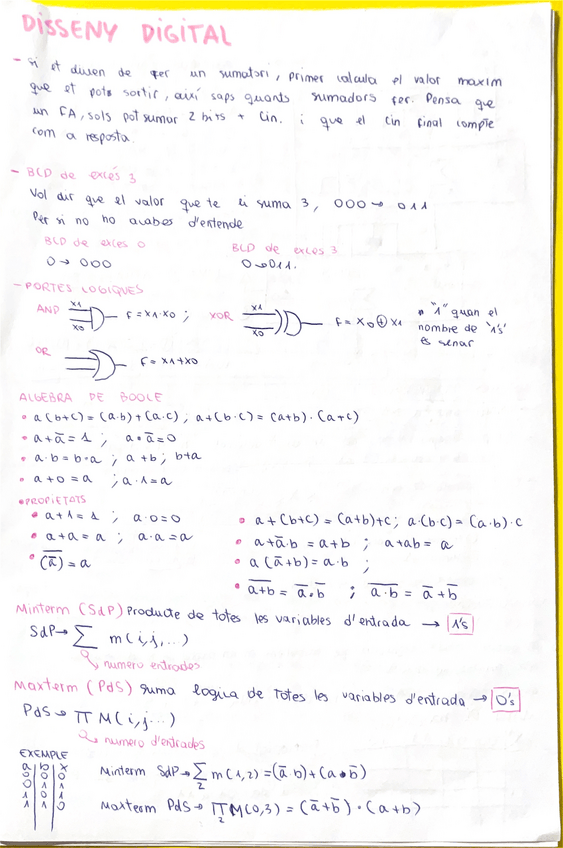 DISSENY DIGITAL
- Si et diuen de fer un sumatori, primer calcula el valor maxim
que et pots sortir, així saps quants sumadors fer. Pensa que
un FA, sols pot sumar 2 bits + Cin. i que el Cin final compte
com a resposta.
- BCD de excés 3
Vol dir que el valor que te li suma 3, 000 → 011
Per si no ho acabes d'entende
BCD de exces 0 BCD de exces 3
0 → 000 0 → 011.
- PORTES LOGIQUES
AND X1 X0 F = X1·X0 ; XOR X1 X0 F = X0 ⊕ X1 * "1" quan el
nombre de "1's"
és senar
OR F = X1+X0
ALGEBRA DE BOOLE
• a(b+c) = (a·b)+(a·c) ; a+(b·c) = (a+b)·(a+c)
• a+a̅ = 1 ; a•a̅ = 0
• a·b = b·a ; a+b ; b+a
• a+0 = a ; a·1 = a
•PROPIETATS
• a+1 = 1 ; a·0 = 0 • a+(b+c) = (a+b)+c ; a·(b·c) = (a·b)·c
• a+a = a ; a·a = a • a+a̅·b = a+b ; a+ab = a
• (a̅)̅ = a • a(a̅+b) = a·b ;
• a̅+̅b̅ = a̅•b̅ ; a̅·̅b̅ = a̅+b̅
Minterm (SdP) Producte de totes les variables d'entrada → 1's
SdP → ∑ m(i,j,..)
numero entrades
Maxterm (PdS) suma logica de totes les variables d'entrada → 0's
PdS → ∏ M(i,j...)
numero d'entrades
EXEMPLE
a b x
0 0 0
0 1 1
1 0 1
1 1 0
Minterm SdP → ∑2 m(1,2) = (a̅·b)+(a•b̅)
Maxterm PdS → ∏2 M(0,3) = (a̅+b̅)·(a+b)